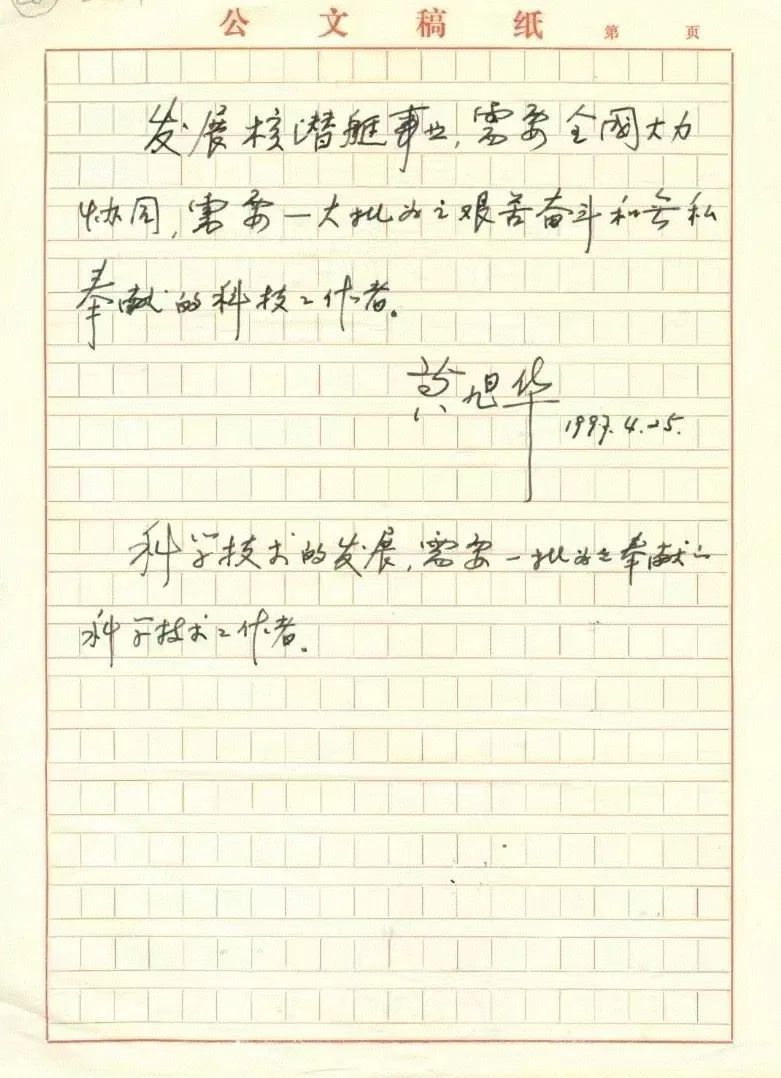 公文稿纸 第 页
发展核潜艇事业,需要全国大力
协同,需要一大批为之艰苦奋斗和无私
奉献的科技工作者。
黄旭华
1997.4.25.
科学技术的发展,需要一批为之奉献的
科学技术工作者。